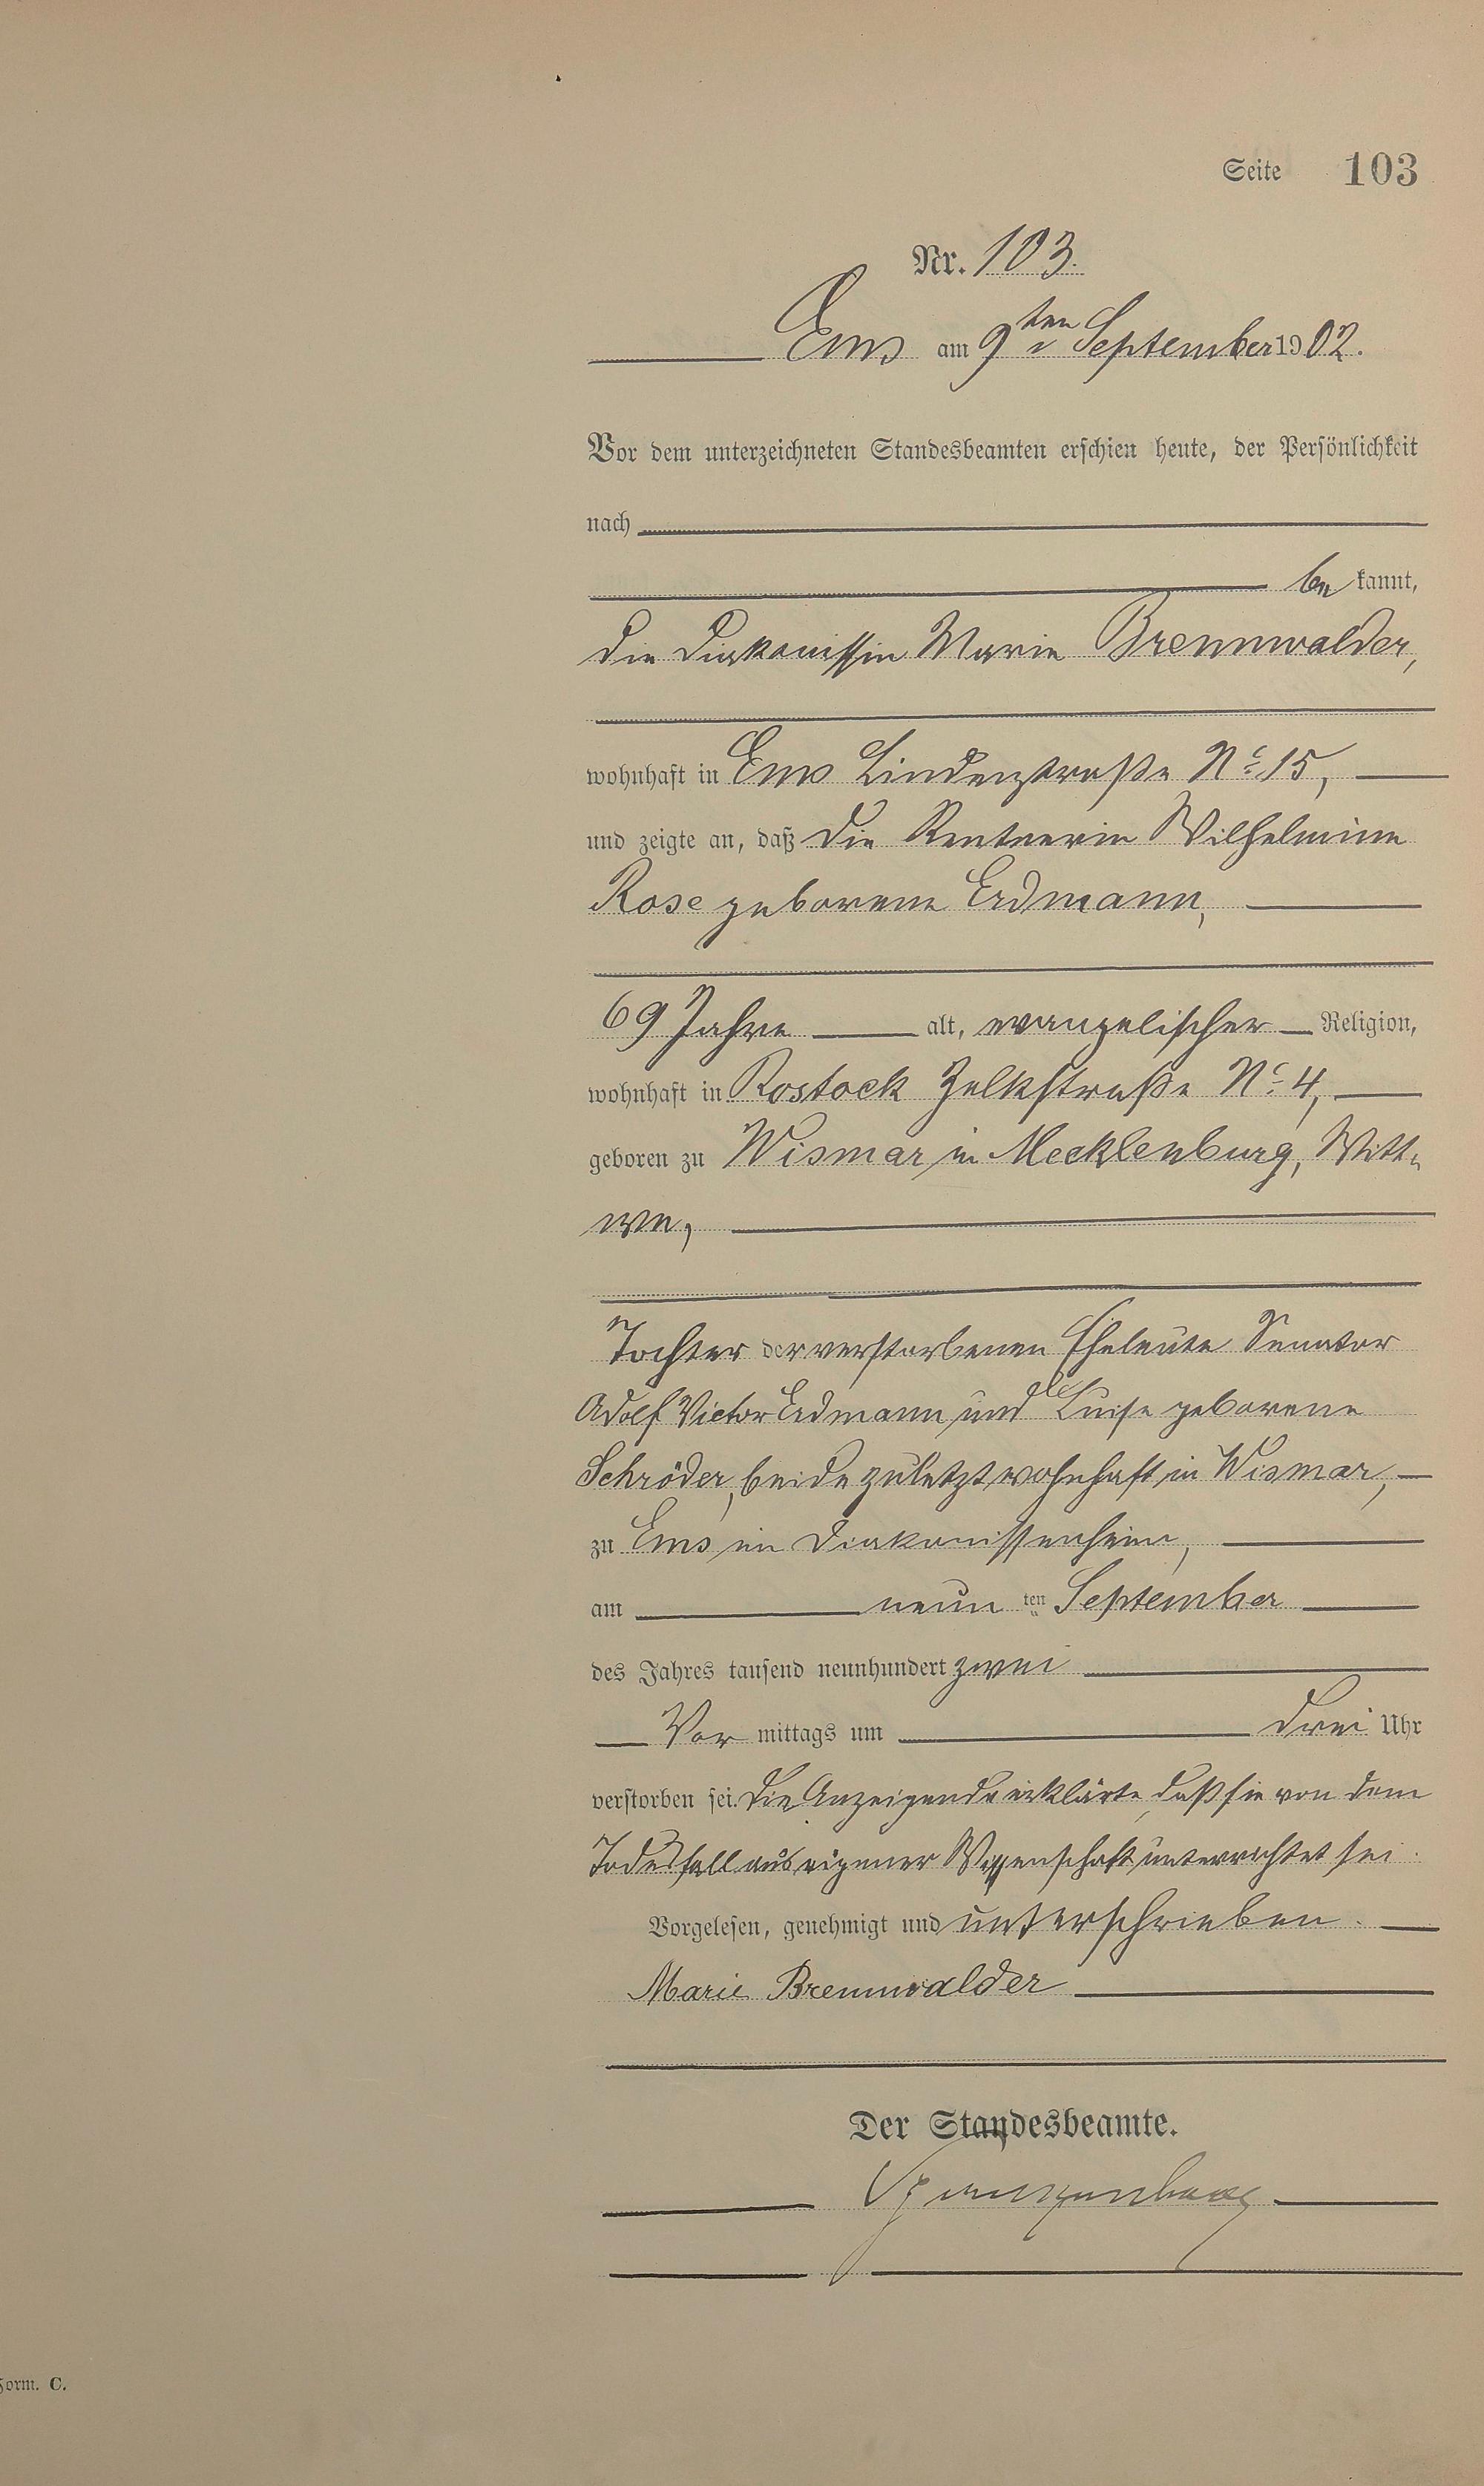 Seite 103
Nr. 103.
Ems am 9ten September 1902.
Vor dem unterzeichneten Standesbeamten erschien heute, der Persönlichkeit
nach
be kannt,
die Diakonissin Marie Brennwalder,
wohnhaft in Ems Lindenstraße No 15,
und zeigte an, daß die Rentnerin Wilhelmine
Rose geborene Erdmann,
69 Jahre alt, evangelischer Religion,
wohnhaft in Rostock No 4,
geboren zu Wismar in Mecklenburg, Witt-
we,
Tochter der verstorbenen Eheleute Senator
Adolf Victor Erdmann und Luise geborene
Schröder, beide zuletzt wohnhaft in Wismar,
zu Ems im Diakonissenheim,
am neun ten September
des Jahres tausend neunhundert zwei
Vor mittags um drei Uhr
verstorben sei. Die Anzeigende erklärte, daß sie von dem
Todesfall aus eigener Wissenschaft unterrichtet sei.
Vorgelesen, genehmigt und unterschrieben.
Marie Brennwalder
Der Standesbeamte.
Form. C.